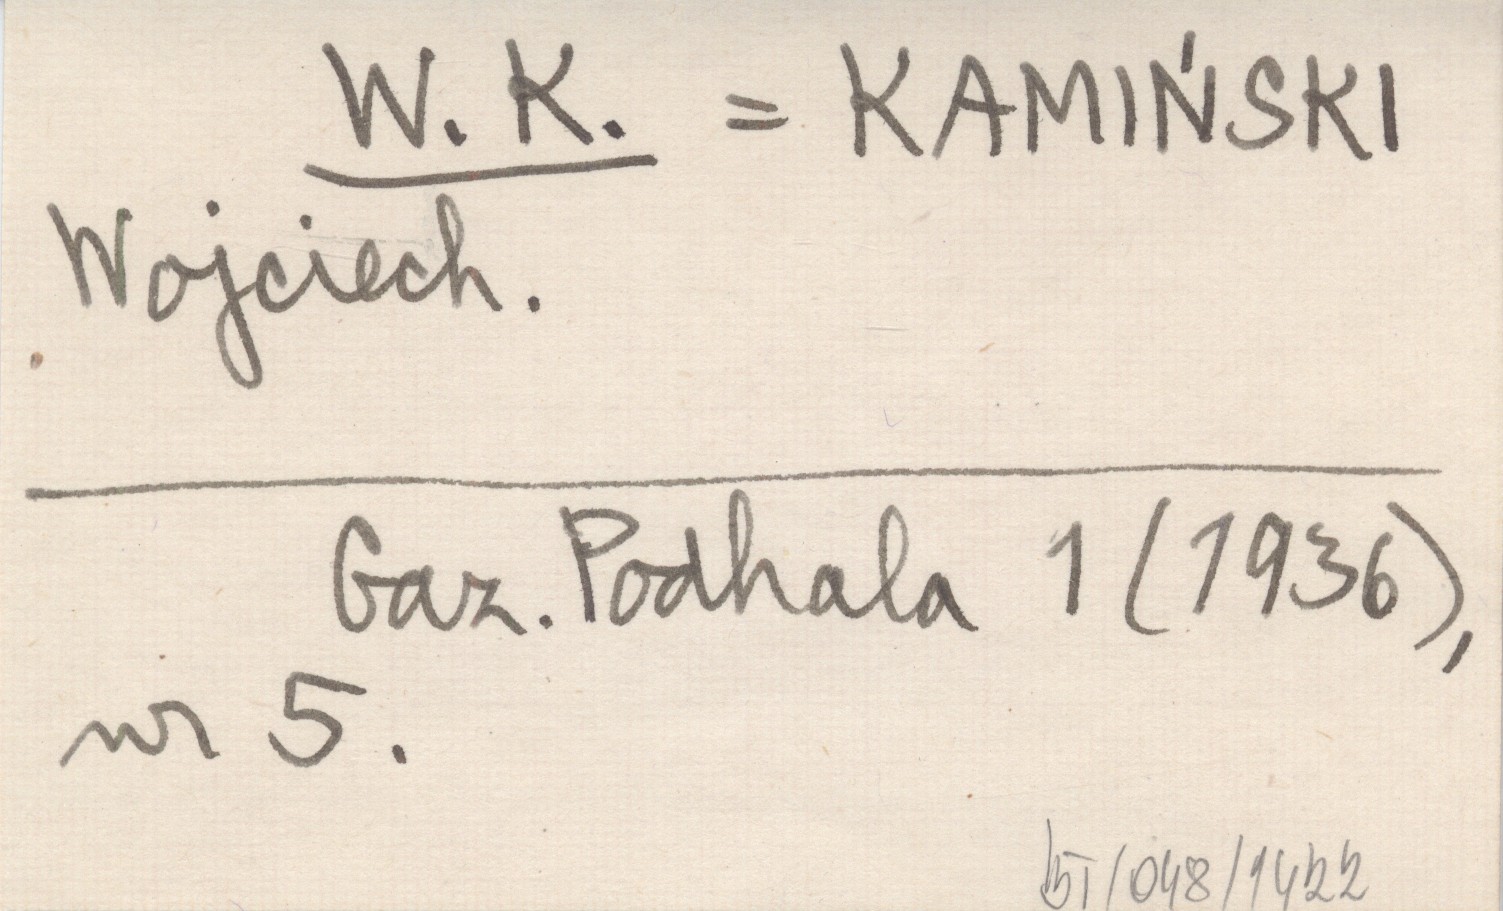 W. K. = KAMIŃSKI
Wojciech.
Gaz. Podhala 1 (1936),
nr 5.
BT/048/1422